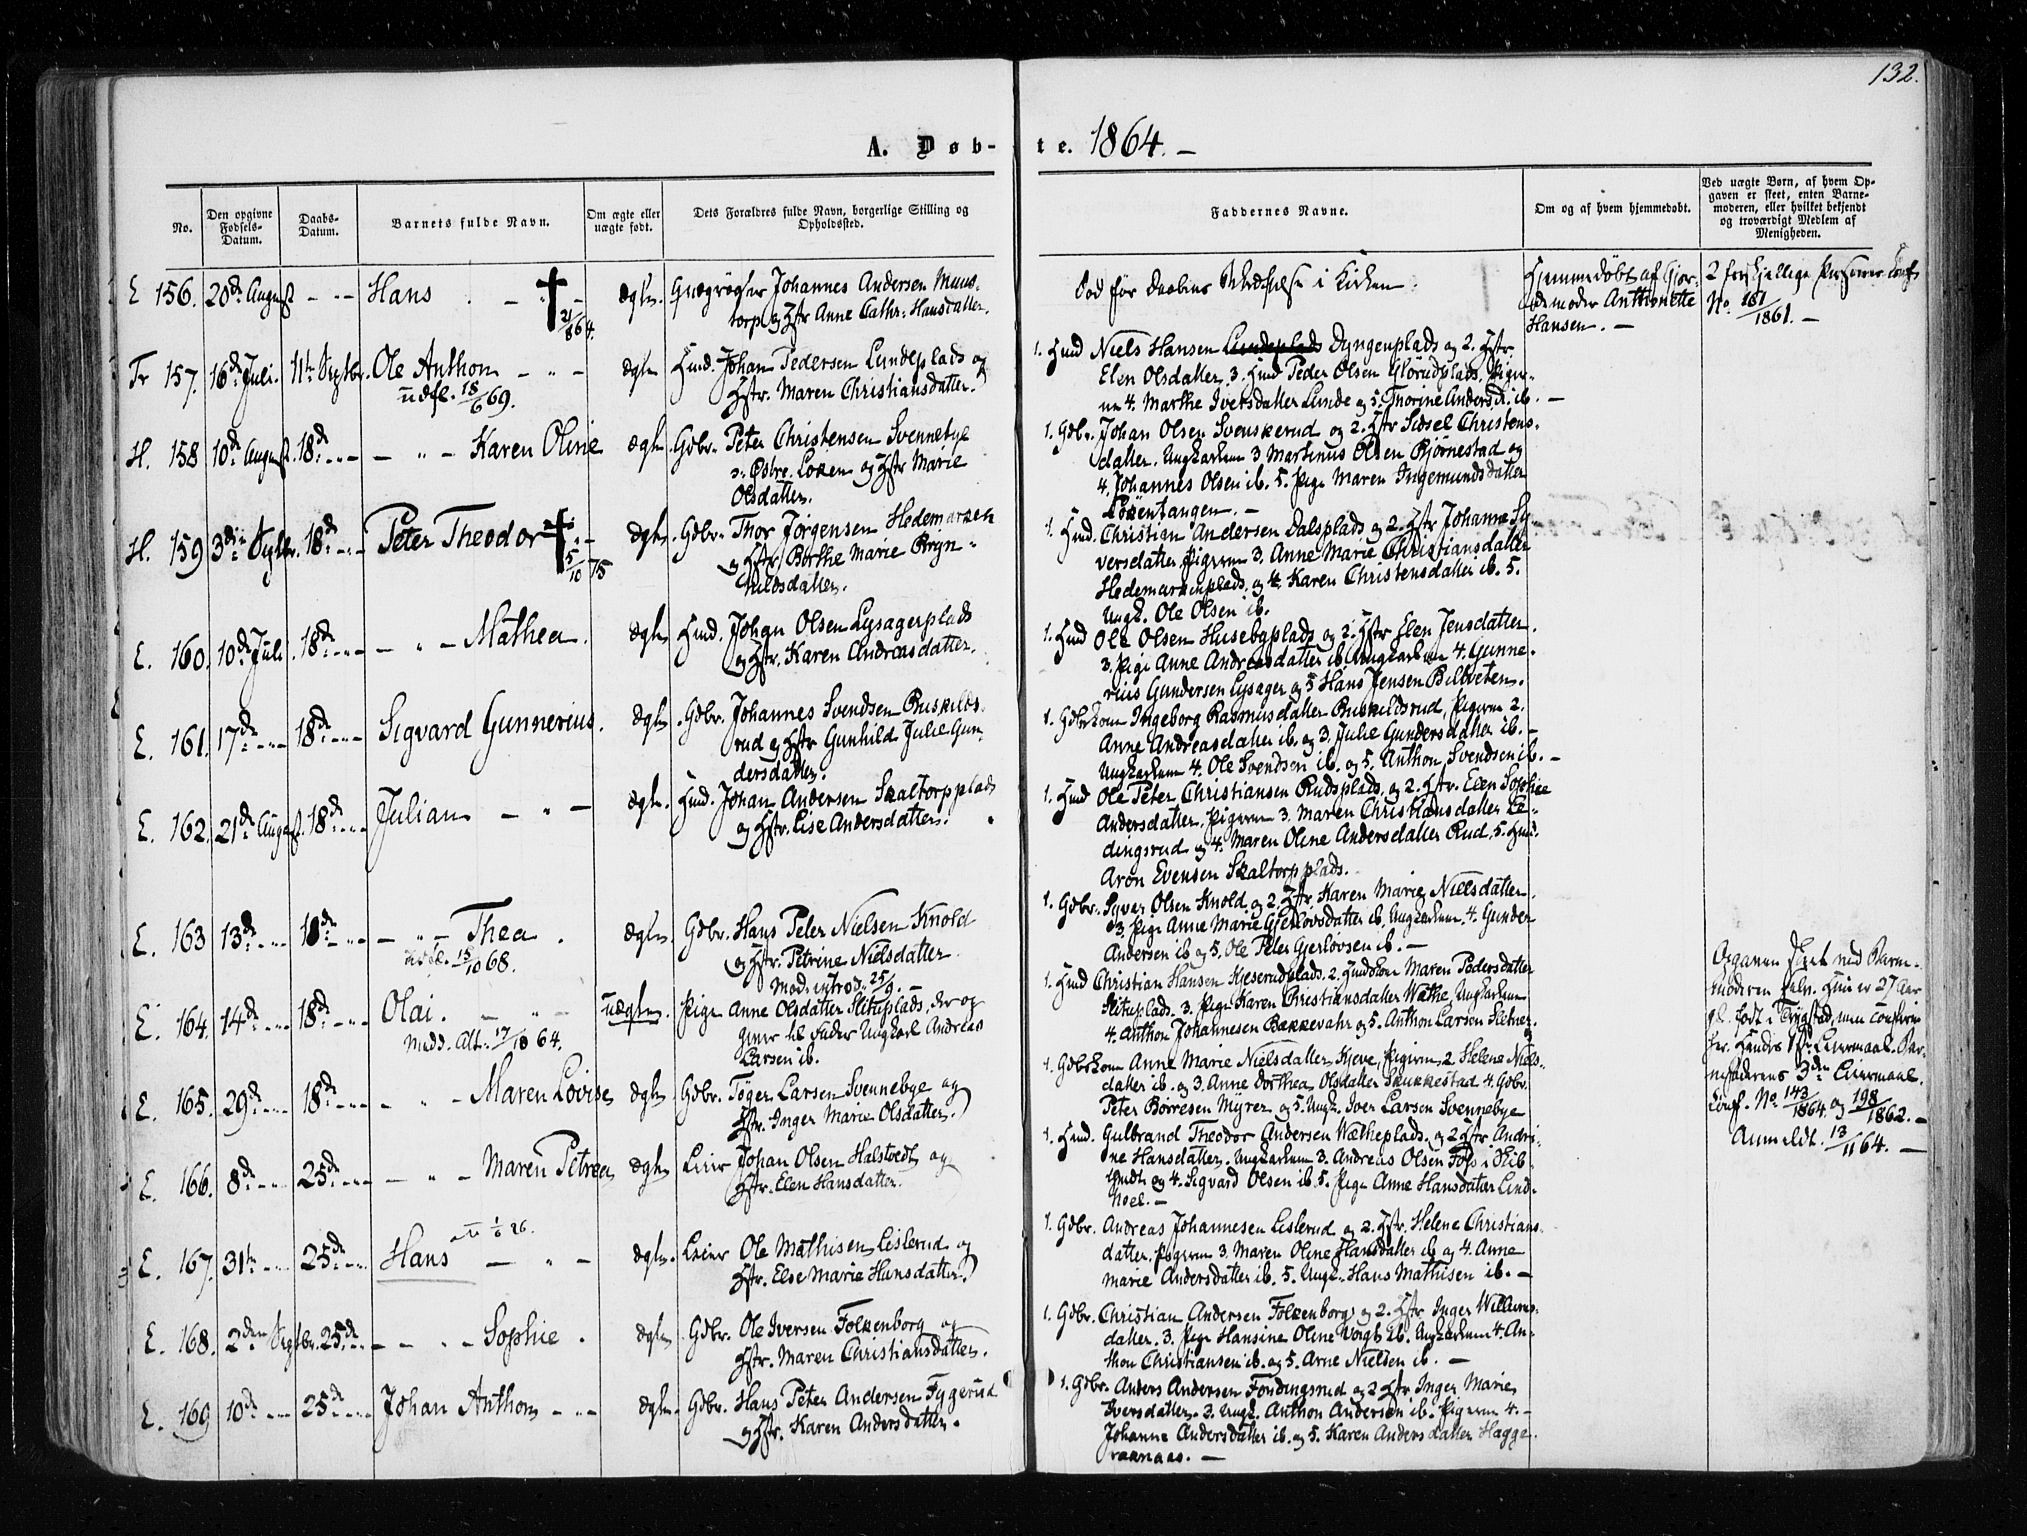 132.
A. Døb-te. 1864. —
No.
Den opgivne Fødsels-Datum.
Daabs-Datum.
Barnets fulde Navn.
Om ægte eller uægte født.
Dets Forældres fulde Navn, borgerlige Stilling og Opholdssted.
Faddernes Navne.
Om og af hvem hjemmedøbt.
Ved uægte Børn, af hvem Opgaven er skeet, enten Barnemoderen, eller hvilket bekjendt og troværdigt Medlem af Menigheden.
E 156. 20de August - - - Hans . - † 21/8 64. ægte.
Johannes Andersen
og Hstr Anne Cathr: Hansdatter.
Død før Daabens i Kirken.
Hjemmedøbt af Gjor-
demoder Anthonette
Hansen. —
2 forskjellige Personer
No. 187/1861. —
Tr 157. 16de Juli. 11te Septbr. Ole Anthon - „ -
udfl. 18/6 69.
ægte Huusmd. Johan Pedersen Lundeplads og
Hstr. Maren Christiansdatter.
1. Huusmd Niels Hansen Lundeplads Dyngenplads og 2. Hstr.
Elen Olsdatter, 3. Huusmd Peder Olsen Glørudplads, Piger-
ne 4. Marthe Iversdatter Lunde og 5. Thorine Anders.d. ib. —
H. 158 10de August. 18de - „ - Karen Oline ægte.
Gdbr. Peter Christensen Svennebye
s: Østre. Loken og Hstr Marie
Olsdatter.
1. Gdbr. Johan Olsen Svenskerud og 2. Hstr Sidsel Christens-
datter. Ungkarlene 3 Martinus Olsen Bjørnestad og
4. Johannes Olsen ib. 5. Pige Maren Ingemundsdatter
Løkentangen. —
H. 159 3die Septbr. 18de Peter Theodor † 5/10 75 ægte.
Gdbr. Thor Jørgensen Hedemarken
og Hstr. Berthe Marie Bryn-
hildsdatter.
1. Huusmd. Christian Andersen Dalsplads og 2. Hstr Johanne Sy-
versdatter, Pigerne 3. Anne Marie Christiansdatter
Hedemarkenplads, og 4. Karen Christensdatter ib. 5.
Ungk. Ole Olsen ib.
E. 160. 10de Juli . 18de - „ - Mathea. ægte
Huusmd. Johan Olsen Lysagerplads
og Hstr. Karen Andreasdatter.
1. Huusmd Ole Olsen Husebyplads og 2. Hstr Elen Jensdatter.
3. Pige Anne Andreasdatter ib. Ungkarlene 4. Gunne-
rius Gundersen Lysager og 5 Hans Jensen Bilbveten.
E. 161. 17de 18de Sigvard Gunnerius. ægte
Gdbr. Johannes Svendsen Buskilds-
rud og Hstr Gunhild Julie Gun-
dersdatter.
1. Gdbrkone Ingeborg Rasmusdatter Buskildsrud, Pigerne 2.
Anne Andreasdatter ib. og 3. Julie Gundersdatter ib. —
Ungkarlene 4. Ole Svendsen ib. og 5. Anthon Svendsen ib. —
E. 162. 21de August. 18de Julian - „ - ægte.
Huusmd. Johan Andersen Skaltorpplads
og Hstr. Lise Andersdatter.
1. Huusmd Ole Peter Christiansen Rudsplads, og 2. Hstr. Elen Sophie
Andersdatter. Pigerne 3. Maren Christiansdatter Le-
dingsrud og 4. Maren Oline Andersdatter Rud, 5. Huusmd.
Aron Evensen Skaltorpplads.
E. 163 13de 18de - „ - Thea .
udfl. 15/10 68.
ægte. Gdbr. Hans Peter Nielsen Knold
og Hstr. Petrine Nielsdatter
Mod. introd. 25/9.
1. Gdbr. Syver Olsen Knold og 2. Hstr. Karen Marie Nielsdatter.
3 Pige Anne Marie Gjerløvsdatter ib, Ungkarlene. 4. Gunder
Andersen ib og 5. Ole Peter Gjerløvsen ib. —
E. 164. 14de 18de Olai. - „ -
Medd. Alt. 17/10 64.
uægte. Pige Anne Olsdatter Slituplads, der op
giver til Fader Ungkarl Andreas
Larsen ib.
1. Huusmd Christian Hansen Kjeserudplads, 2. Huuskone Maren Pedersdatter
Slituplads. 3. Pige Karen Christiansdatter Wæthe, Ungkarlene
4. Anthon Johannesen Bakkevahr og 5. Anthon Larsen Slituer.
Opgaven skeet ved Barne-
moderen selv. Hun er 27 Aar
gl. født i Trygstad, men Confirm
her. Hendes 1ste Leiermaal. Bar-
nefaderens 3die Leiermaal.
Conf. No. 143/1864. og 198/1862. —
Anmeldt. 13/11 64. —
E. 165. 29de 18de - „ - Maren Lovise ægte
Gdbr. Tøger Larsen Svennebye og
Hstr. Inger Marie Olsdatter.
1. Gdbrkone Anne Marie Nielsdatter Hjeve, Pigerne, 2. Helene Niels-
datter ib. og 3. Anne Dorthea Olsdatter Skukkestad 4. Gdbr.
Peter Børresen Myrer og 5. Ungk. Iver Larsen Svennebye
E. 166. 8de 25de - „ - Maren Petrea ægte
Leier Johan Olsen Halstvedt og
Hstr. Elen Hansdatter.
1. Huusmd. Gulbrand Theodor Andersen Wætheplads. og 2 Hstr Andri-
ne Hansdatter. Ungkarlene 3. Andreas Olsen Fols i Skib-
tvedt og 4. Sigvard Olsen ib 5. Pige Anne Hansdatter Lind-
hoel. —
E. 167. 31te 25de Hans - „ -
1/6 26.
ægte. Leier Ole Mathisen Lislerud og
Hstr. Else Marie Hansdatter.
1. Gdbr. Andreas Johannesen Lislerud og 2. Hstr. Helene Christians-
datter. Pigerne 3. Maren Oline Hansdatter ib og 4. Anne
Marie Andersdatter ib. 5. Ungk. Hans Mathisen ib. —
E. 168. 2den Septbr. 25de - „ - Sophie . ægte
Gdbr. Ole Iversen Folkenborg og
Hstr. Maren Christiansdatter.
1. Gdbr. Christian Andersen Folkenborg og 2. Hstr Inger Willums-
datter. 3. Pige Hansine Oline Voigt ib. Ungkarlene 4. An-
thon Christiansen ib. og 5. Arne Nielsen ib. —
E. 169 10de 25de Johan Anthon - „ - ægte.
Gdbr. Hans Peter Andersen Fygerud
og Hstr. Karen Andersdatter.
1. Gdbr. Anders Andersen Fordingsrud og 2 Hstr. Inger Marie
Iversdatter. 3. Ungk. Anthon Andersen ib. Pigerne 4. -
Johanne Andersdatter ib. og 5. Karen Andersdatter Hagge-
raanaas. —